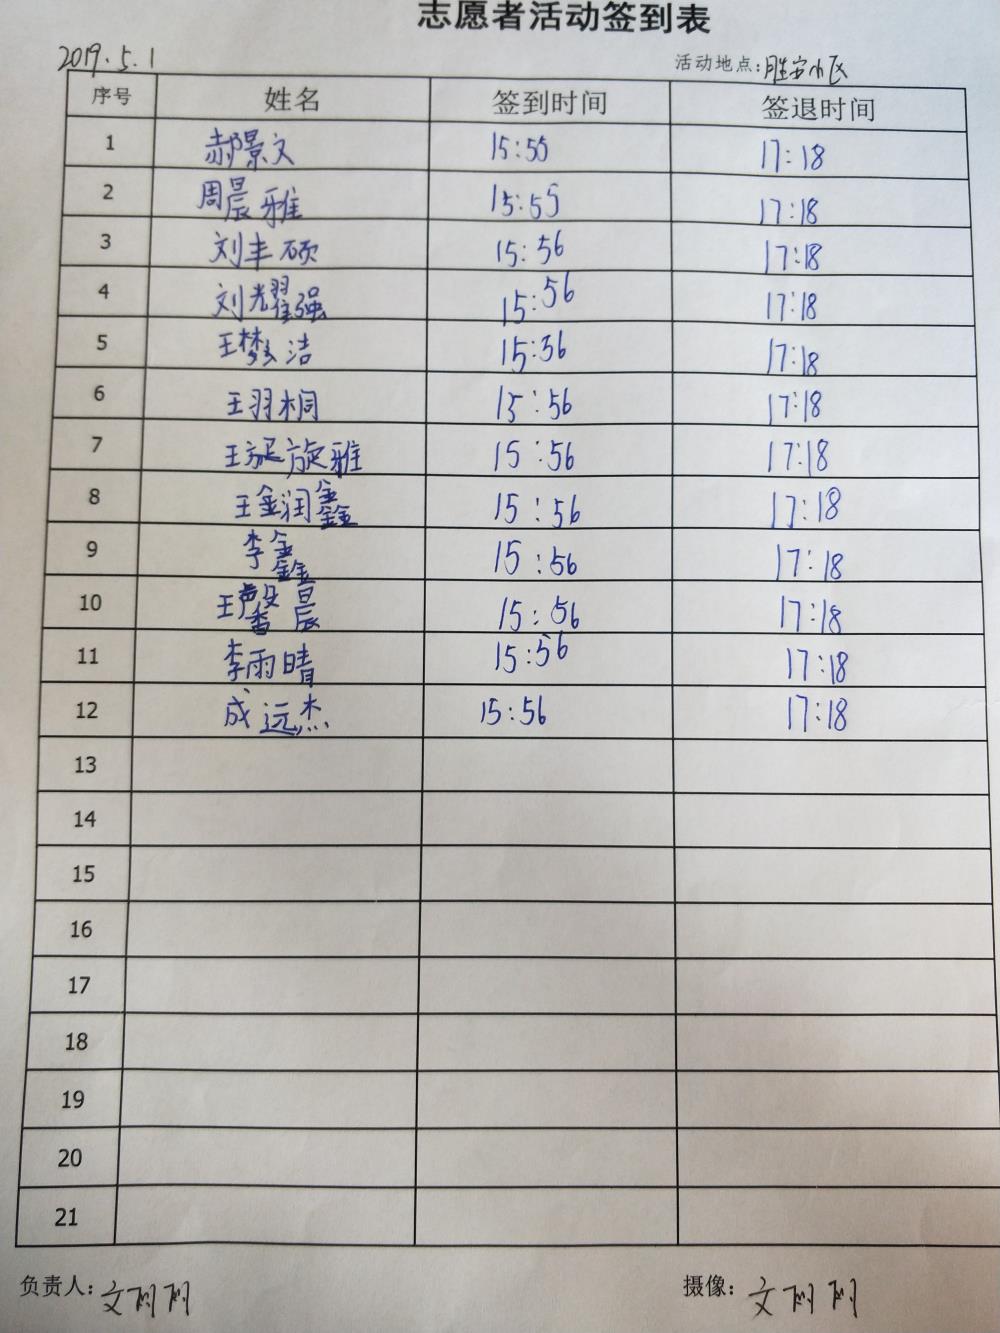 志愿者活动签到表
2019.5.1 活动地点:胜安小区
序号 姓名 签到时间 签退时间
1 郝景文 15:55 17:18
2 周晨雅 15:55 17:18
3 刘丰硕 15:56 17:18
4 刘耀强 15:56 17:18
5 王梦洁 15:56 17:18
6 王羽桐 15:56 17:18
7 王旋雅 15:56 17:18
8 王金润鑫 15:56 17:18
9 李鑫 15:56 17:18
10 王馨晨 15:56 17:18
11 李雨晴 15:56 17:18
12 成远杰 15:56 17:18
13
14
15
16
17
18
19
20
21
负责人: 文 摄像: 文